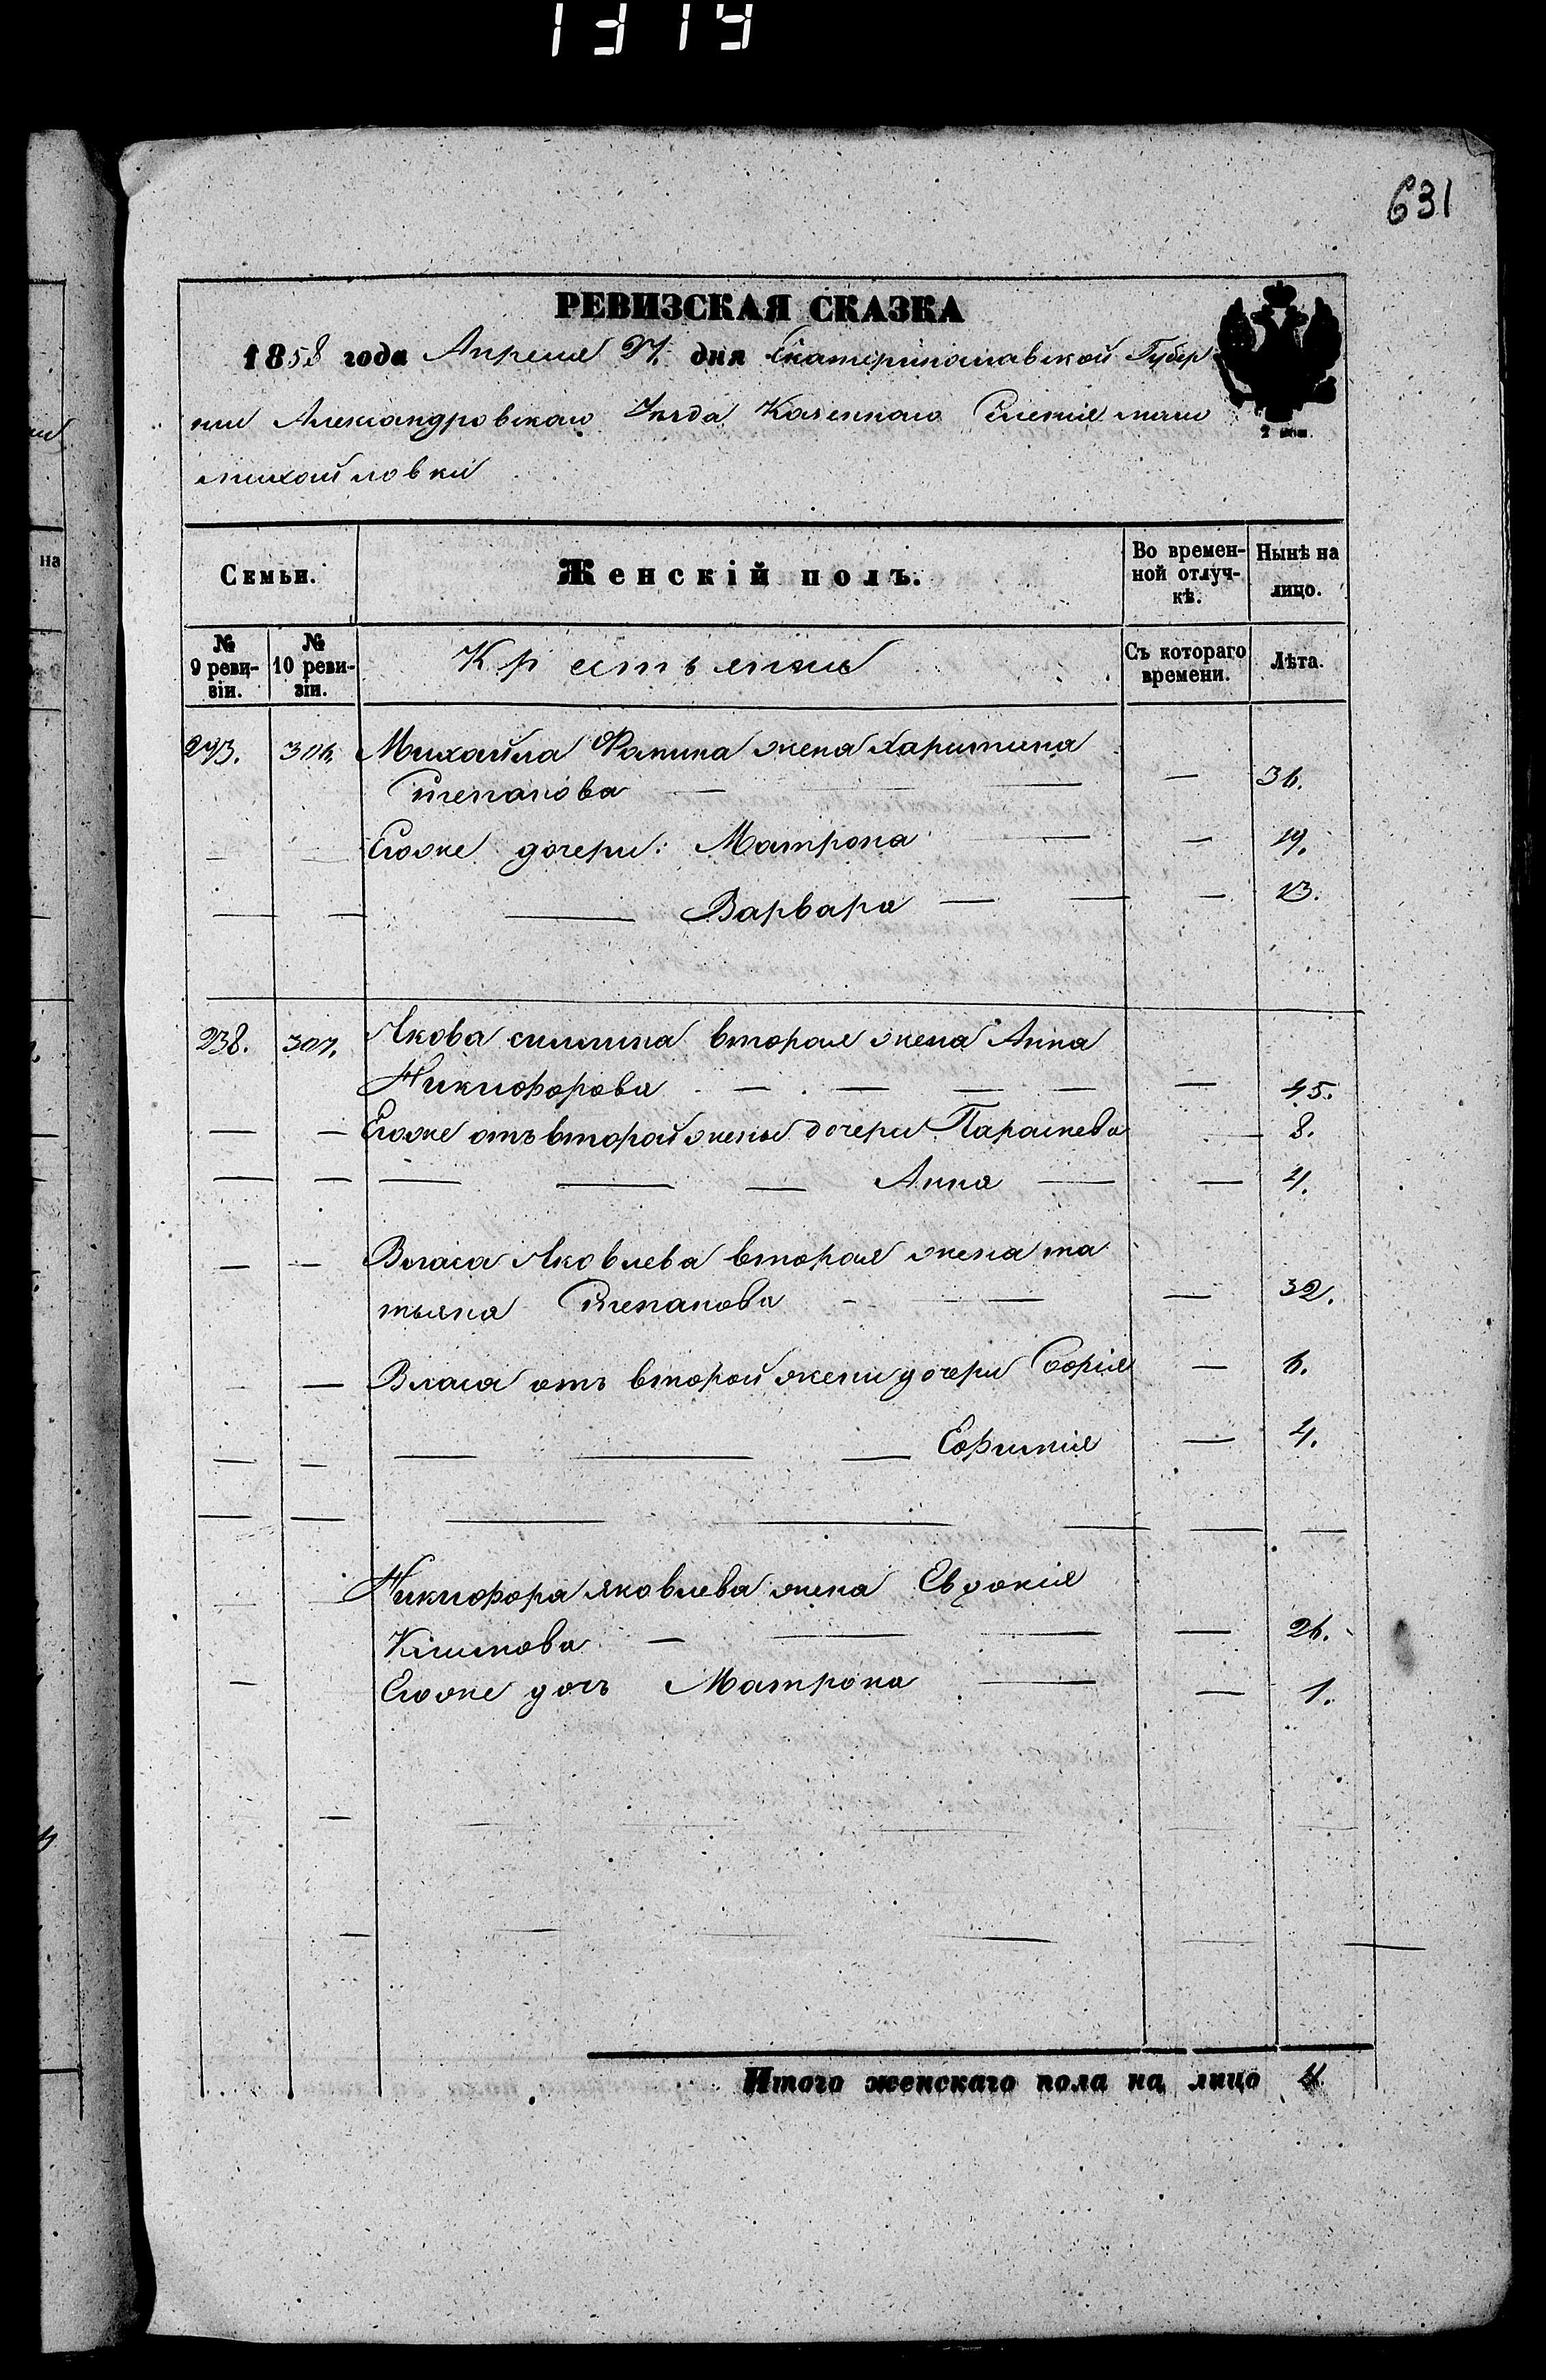 1319
631
РЕВИЗСКАЯ СКАЗКА
1858 года Апреля 27 дня Екатеринославской Губер
нии Александровскаго Уезда Казеннаго Селения
михайловки
Семьи. Женскій полъ. Во времен-ной отлуч-кѣ. Нынѣ на лицо.
№ 9 реви-зіи. № 10 реви-зіи. Крестьянки Съ котораго времени. Лѣта.
293. 306. Михайла Фомина жена Харитина
Степанова — — — 36.
Егоже дочери: Матрона — — 19.
— — — Варвара — — — 13.
238. 307. Якова вторая жена Анна
Никифорова — — — — — 45.
— — Егоже отъ второй жены дочери Параскева — 8.
— — — — — Анна — — 4.
— — Власа Яковлева вторая жена та
тьяна Степанова — — — 32.
— — Власа отъ второй жени дочери Софія — 6.
— — — — — Еофимія — 4.
Никифора яковлева жена Евдокія
Климова — — — — 26.
— Егоже дочь Матрона — — 1.
Итого женскаго пола на лицо